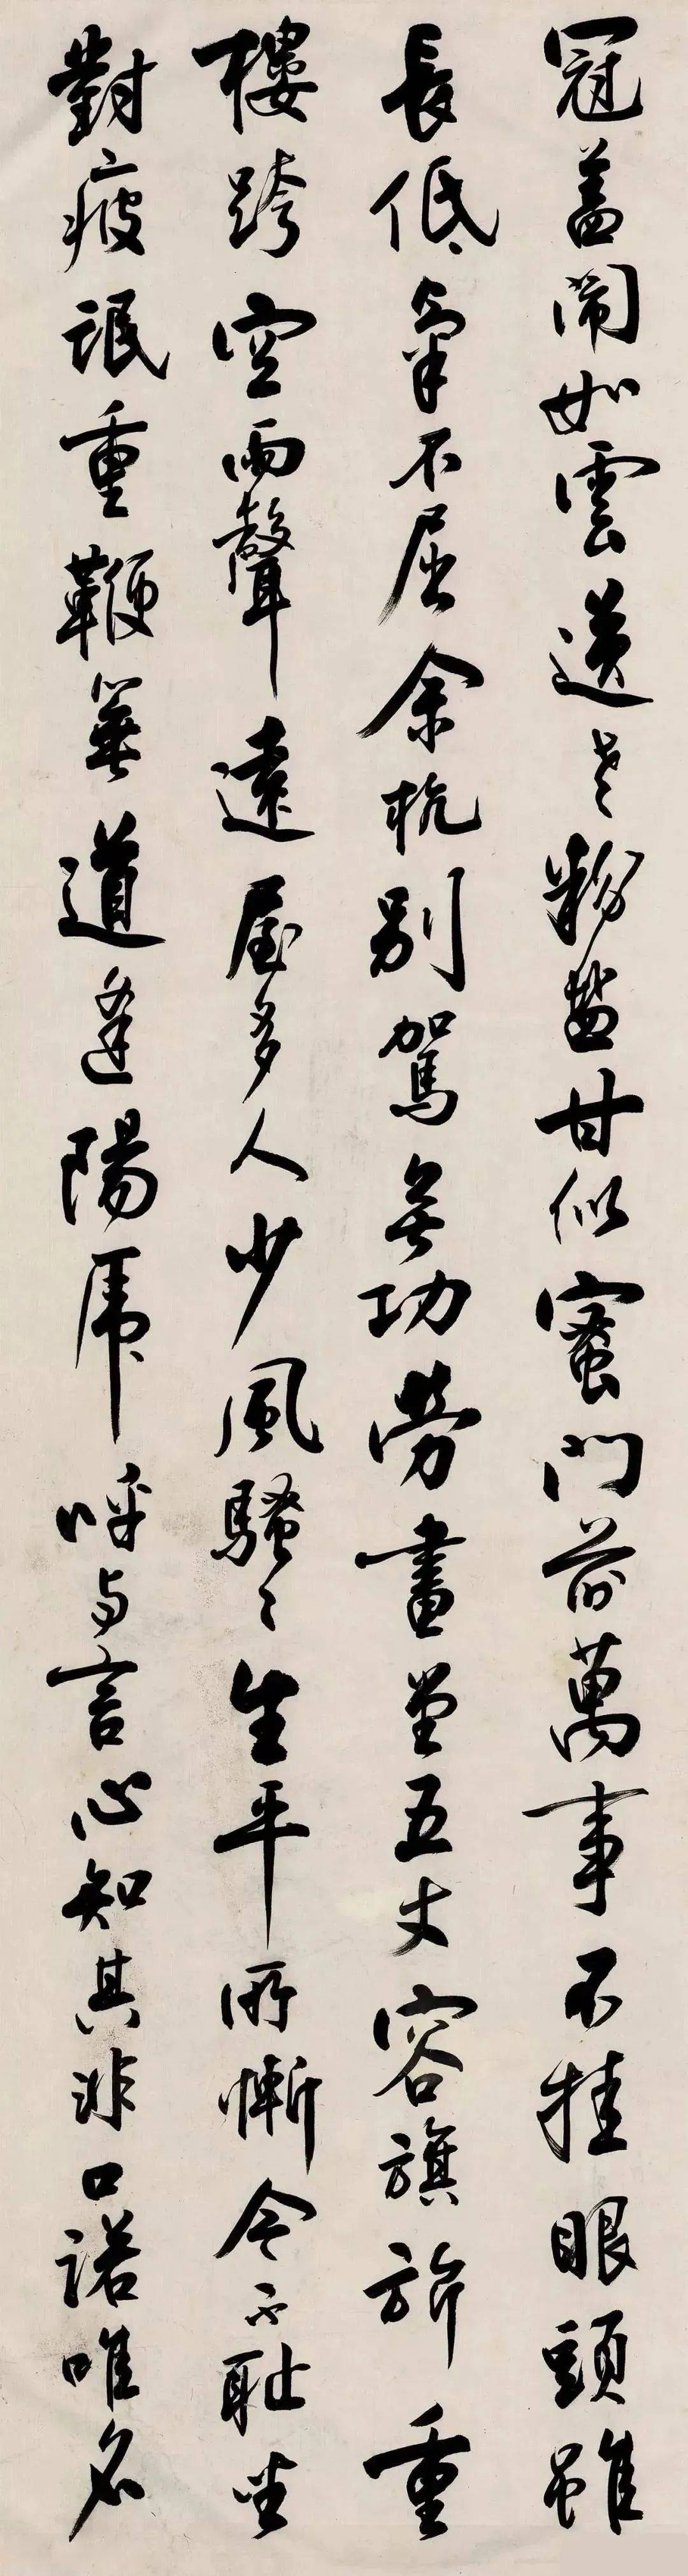 冠盖閙如雲遺老粉鹽甘似蜜門前萬事不挂眼頭雖
長低氣不屈余杭別駕無功勞畫堂五丈容旗旂重
樓跨空雨聲遠屋多人少風騷々生平所慚今不耻坐
對疲氓重鞭箠道逢陽虎呼与言心知其非口諾唯名